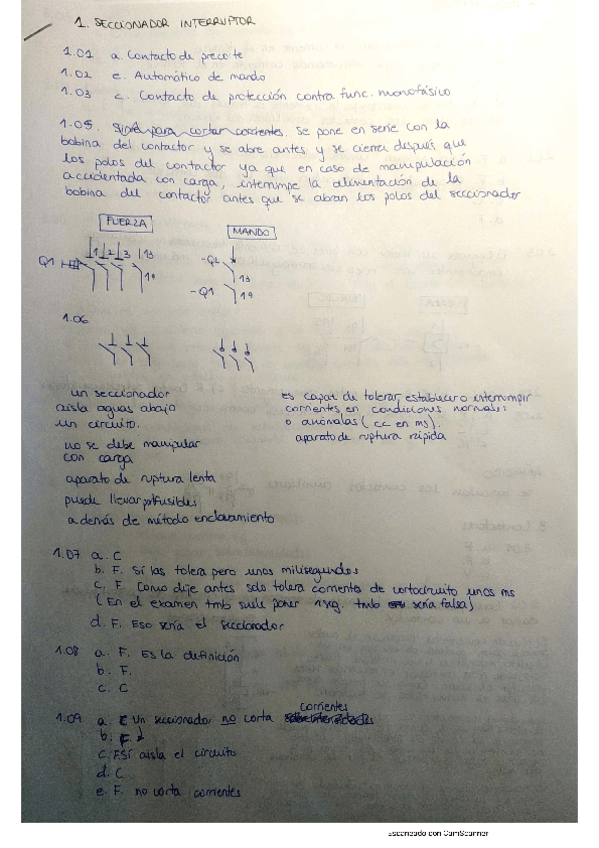 1. SECCIONADOR INTERRUPTOR
1.01 a. Contacto de precorte
1.02 e. Automático de mando
1.03 c. Contacto de protección contra func. monofásico
1.05. Sirve para cortar corrientes. Se pone en serie con la
bobina del contactor y se abre antes y se cierra después que
los polos del contactor ya que en caso de manipulación
accidentada con carga, interrumpe la alimentación de la
bobina del contactor antes que se abran los polos del seccionador
FUERZA
MANDO
Q1 1 2 3 13
14
-Q2
13
-Q1 14
1.06
un seccionador
aisla aguas abajo
un circuito.
no se debe manipular
con carga
aparato de ruptura lenta
puede llevar portfusibles
además de método enclavamiento
es capaz de tolerar, establecer o interrumpir
corrientes en condiciones normales
o anómalas (cc en ms).
aparato de ruptura rápida
1.07 a. C
b. F. Sí las tolera pero unos milisegundos
c. F. Como dije antes solo tolera corriente de cortocircuito unos ms
(En el examen tmb suele poner 1 seg. tmb sería falsa)
d. F. Eso sería el seccionador
1.08 a. F. Es la definición
b. F.
c. C
1.09 a. Un seccionador no corta corrientes
b. F
c. F. Sí aisla el circuito
d. C
e. F. no corta corrientes
Escaneado con CamScanner